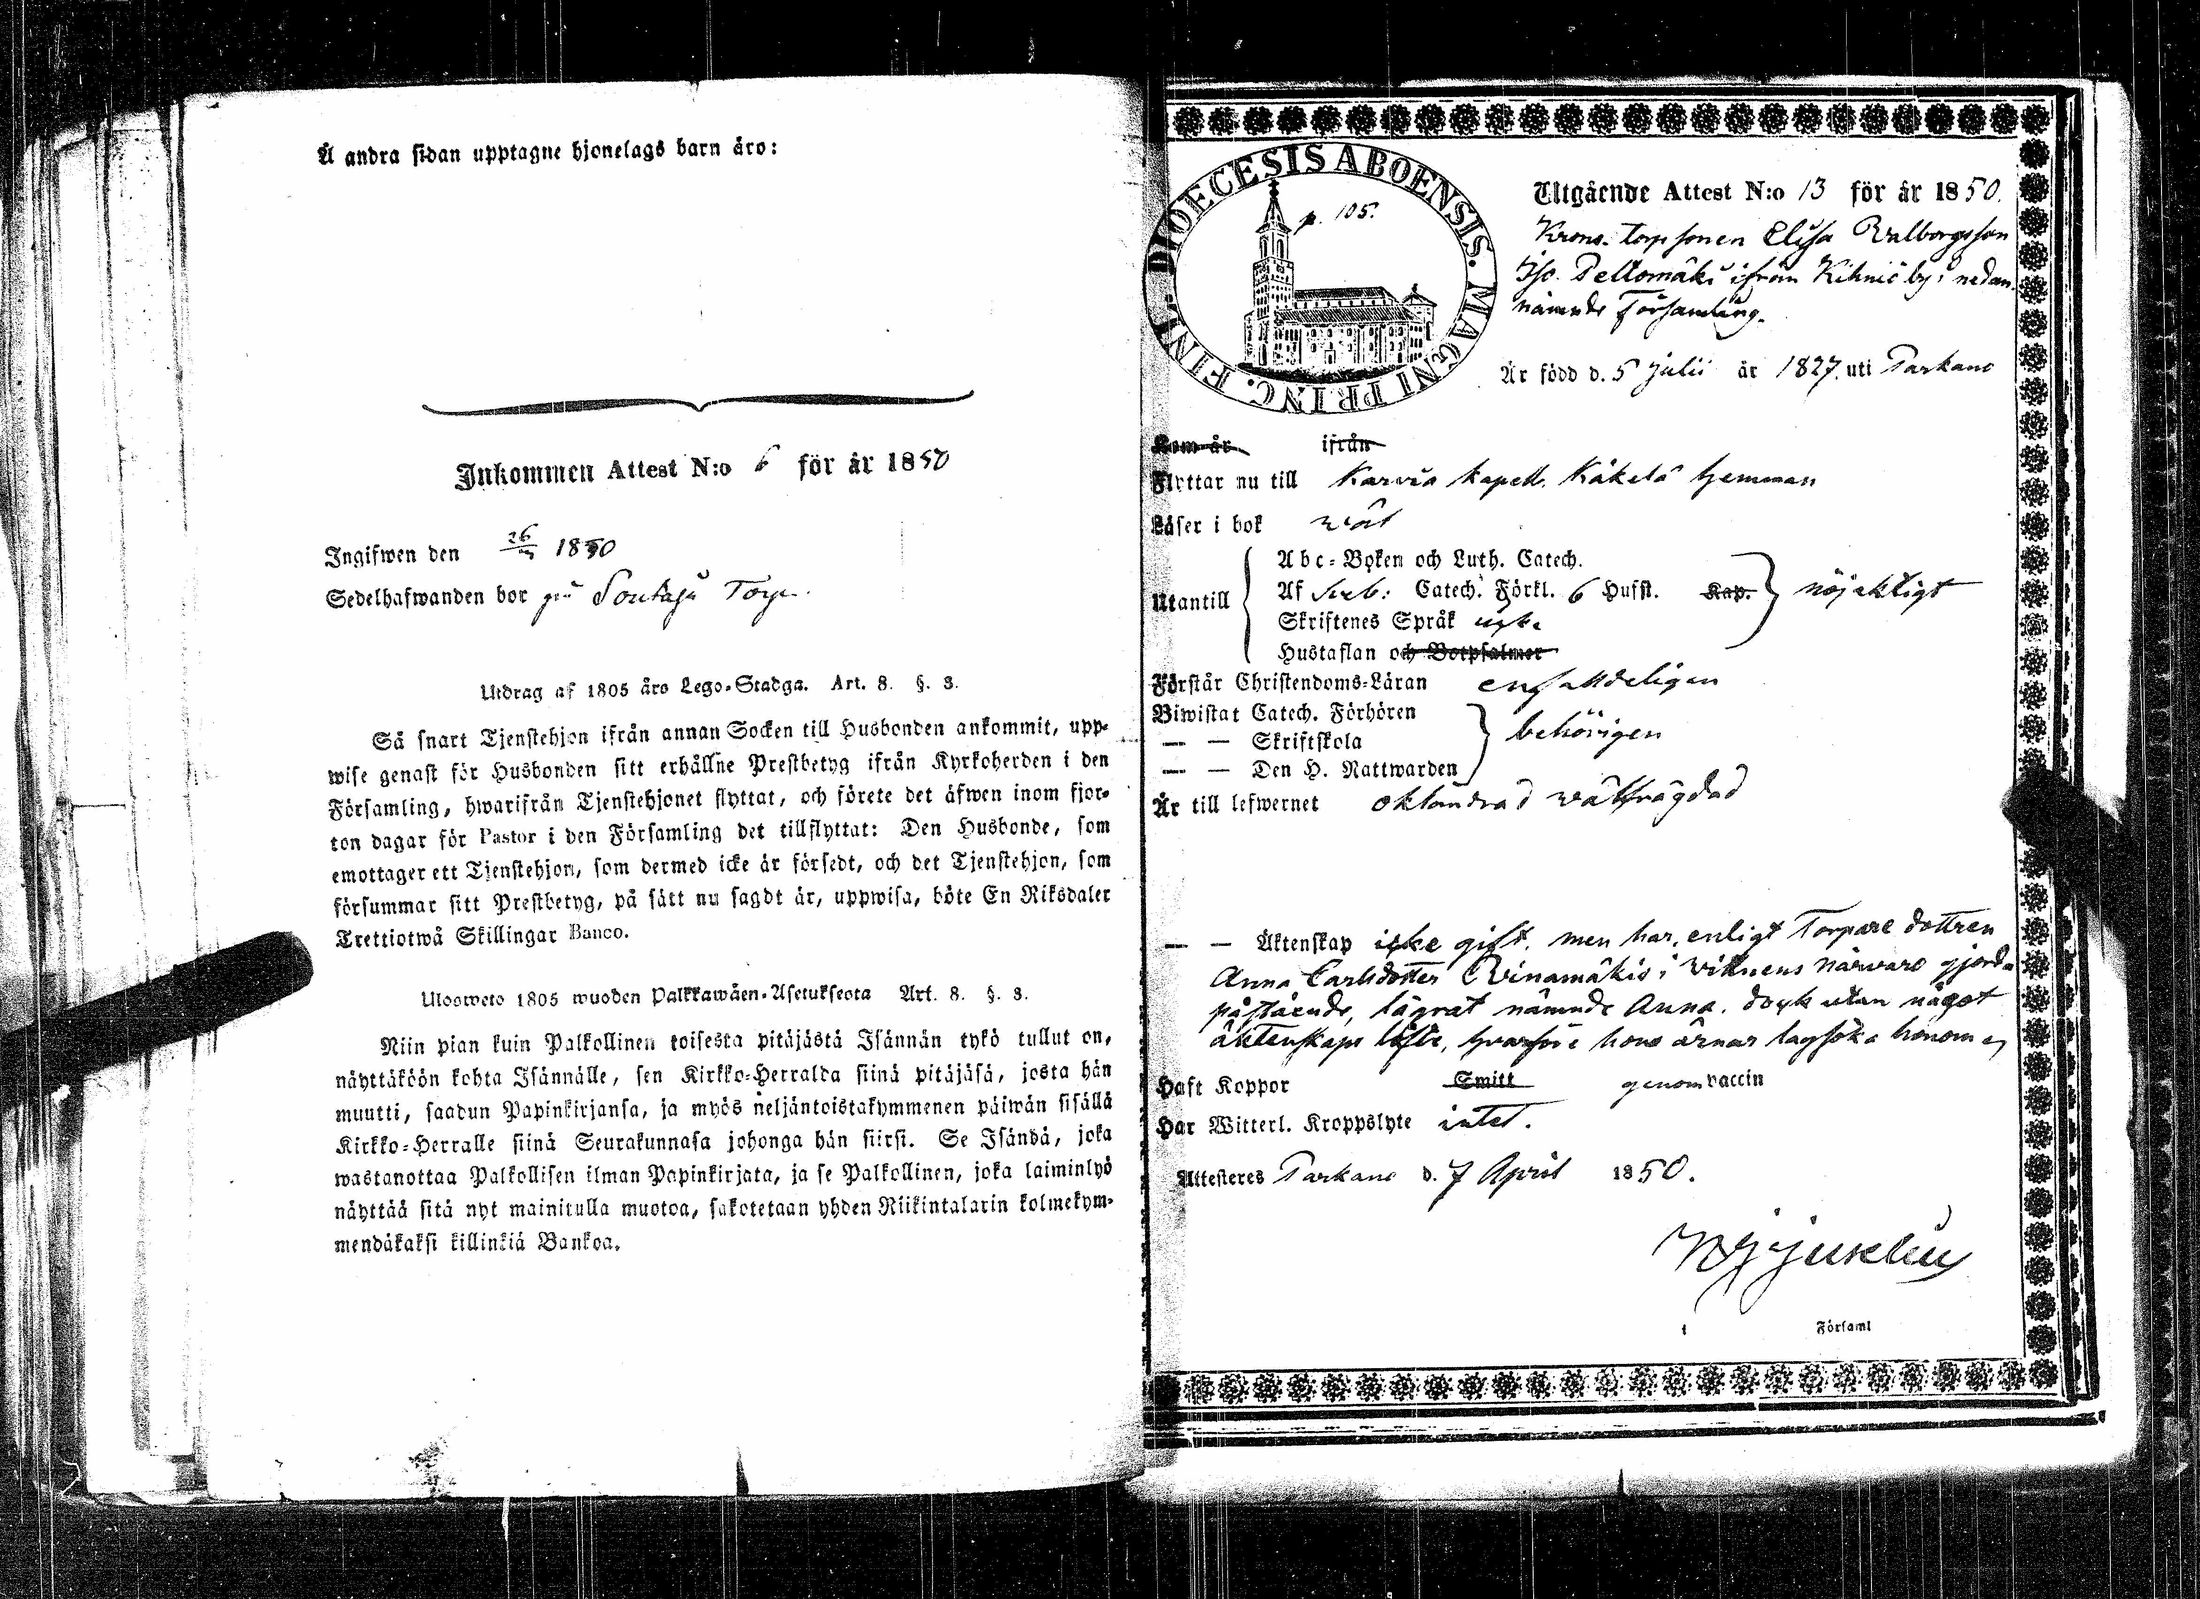 Å andra sidan upptagne hjonelags barn äro:
Inkommen Attest N:o 6 för år 1850
Ingifwen den 26/ 1850
Sedelhafwanden bor på Torp.
Utdrag af 1805 års Lego-Stadga. Art. 8. §. 3.
Så snart Tjenstehjon ifrån annan Socken till Husbonden ankommit, upp-
wise genast för Husbonden sitt erhållne Prestbetyg ifrån Kyrkoherden i den
Församling, hwarifrån Tjenstehjonet flyttat, och förete det äfwen inom fjor-
ton dagar för Pastor i den Församling det tillflyttat: Den Husbonde, som
emottager ett Tjenstehjon, som dermed icke är försedt, och det Tjenstehjon, som
försummar sitt Prestbetyg, på sätt nu sagdt är, uppwisa, böte En Riksdaler
Trettiotwå Skillingar Banco.
Ulosweto 1805 wuoden Palkkawäen-Asetuksesta Art. 8. §. 3.
Niin pian kuin Palkollinen toisesta pitäjästä Isännän tykö tullut on,
näyttäköön kohta Isännälle, sen Kirkko-Herralda siinä pitäjäsä, josta hän
muutti, saadun Papinkirjansa, ja myös neljäntoistakymmenen päiwän sisällä
Kirkko-Herralle siinä Seurakunnasa johonga hän siirsi. Se Isändä, joka
wastanottaa Palkollisen ilman Papinkirjata, ja se Palkollinen, joka laiminlyö
näyttää sitä nyt mainitulla muotoa, sakotetaan yhden Riikintalarin kolmekym-
mendäkaksi killinkiä Bankoa.
DIOECESIS ABOENSIS. MAGNI PRINC. FINL.
p. 105.
Utgående Attest N:o 13 för år 1850.
Krono-torpsonen Elisa Walborgsson
Iso Peltomäki ifrån Kihniö by i nedan-
nämnde Församling.
Är född d. 5 Julii år 1827. uti Parkano
Kom år ifrån
Flyttar nu till Karvia kapell. Käkelä hemman
Läser i bok wäl
Utantill
Abc-Boken och Luth. Catech.
Af Catech. Förkl. 6 Hufst. Kap. nöjaktigt
Skriftenes Språk
Hustaflan och Botpsalmer
Förstår Christendoms-Läran enfaldeligen
Biwistat Catech. Förhören
— — Skriftskola behörigen
— — Den H. Nattwarden
Är till lefwernet oklandrad wälfrägdad
— — Äktenskap icke gift, men har, enligt Torpare dottren
Anna Carlsdotter Winamäkis i vittnens närvaro gjorda
påstående, lägrat nämnde Anna, dock utan något
äktenskaps löfte, hvarföre hon ärnar lagsöka honom
Haft Koppor Smitt genom vaccin
Har Witterl. Kroppslyte intet.
Attesteras Parkano d. 7 April 1850.
Församl